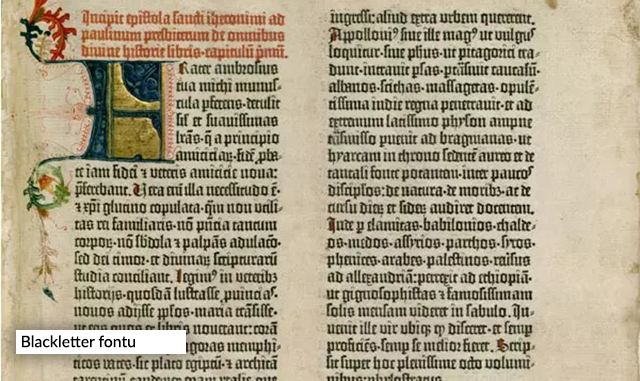 Incipit epistola sancti iheronimi ad
paulinum presbiterum de omnibus
divine historie libris· capitulum pⁱmū.
Frater ambrosius
tua michi munus-
cula ꝑferens· detulit
sil̄ et suavissimas
lr̄as· q̄ a principio
amiciciaꝝ· fidē ꝓba-
te iam fidei ⁊ veteris amicicie nova:
ꝑferebant. Vera eni̅ illa necessitudo ē·
⁊ xp̄i glutino copulata· qm̄ non utili-
tas rei familiaris· nō pn̄cia tantum
corpoꝝ· nō sb̄dola ⁊ palpās adulacō·
sed dei timor· et divinaꝝ scripturarū
studia conciliant. Legimꝰ in veteribꝫ
historijs· quosdā lustrasse ꝓvincias·
novos adijsse ꝓplos· maria trāsisse·
Blackletter fontu
ticos vates· sic plato egiptū· ⁊ archita
ingressi: aliud extra urbem quererent.
Appolloniꝰ sive ille magꝰ ut vulgus
loquitur· sive ph̄us· ut pitagorici tra-
dunt· intravit ꝑsas· ꝑtrāsivit caucasū·
albanos· scithas· massagetas· opulē-
tissima indie regna penetravit· et ad
extremum latissimo physon ampne
trāsmisso ꝑvenit ad bragmanas· ut
hyarcam in throno sedentē aureo et de
tantali fonte potantem· inter paucos
discipl̄os· de natura· de moribꝫ· ac de
cursu dieꝝ et sideꝝ audiret docentem.
Inde ꝑ elamitas· babilonios· chalde-
os· medos· assyrios· parthos· syros·
phenices· arabes· palestinos· reūsus
ad allexandriā: ꝑrexit ad ethiopiā·
ut gignosophistas ⁊ famosissimam
solis mensam videret in sabulo. In-
venit ille vir ubiqꝫ qd̄ disceret· et semꝑ
proficiēs· semꝑ se melior fieret. Scrip-
sit super hoc plenissime octo volumi-
nibus· phylostratus.